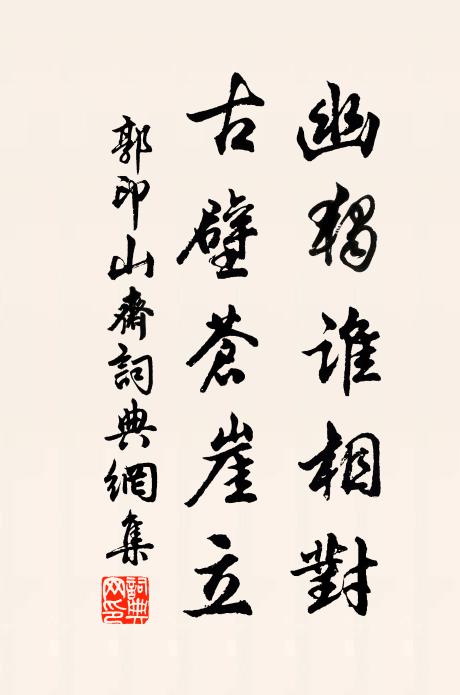 幽獨誰相對
古壁蒼崖立
郭印山齋詞典網集
詞典网印